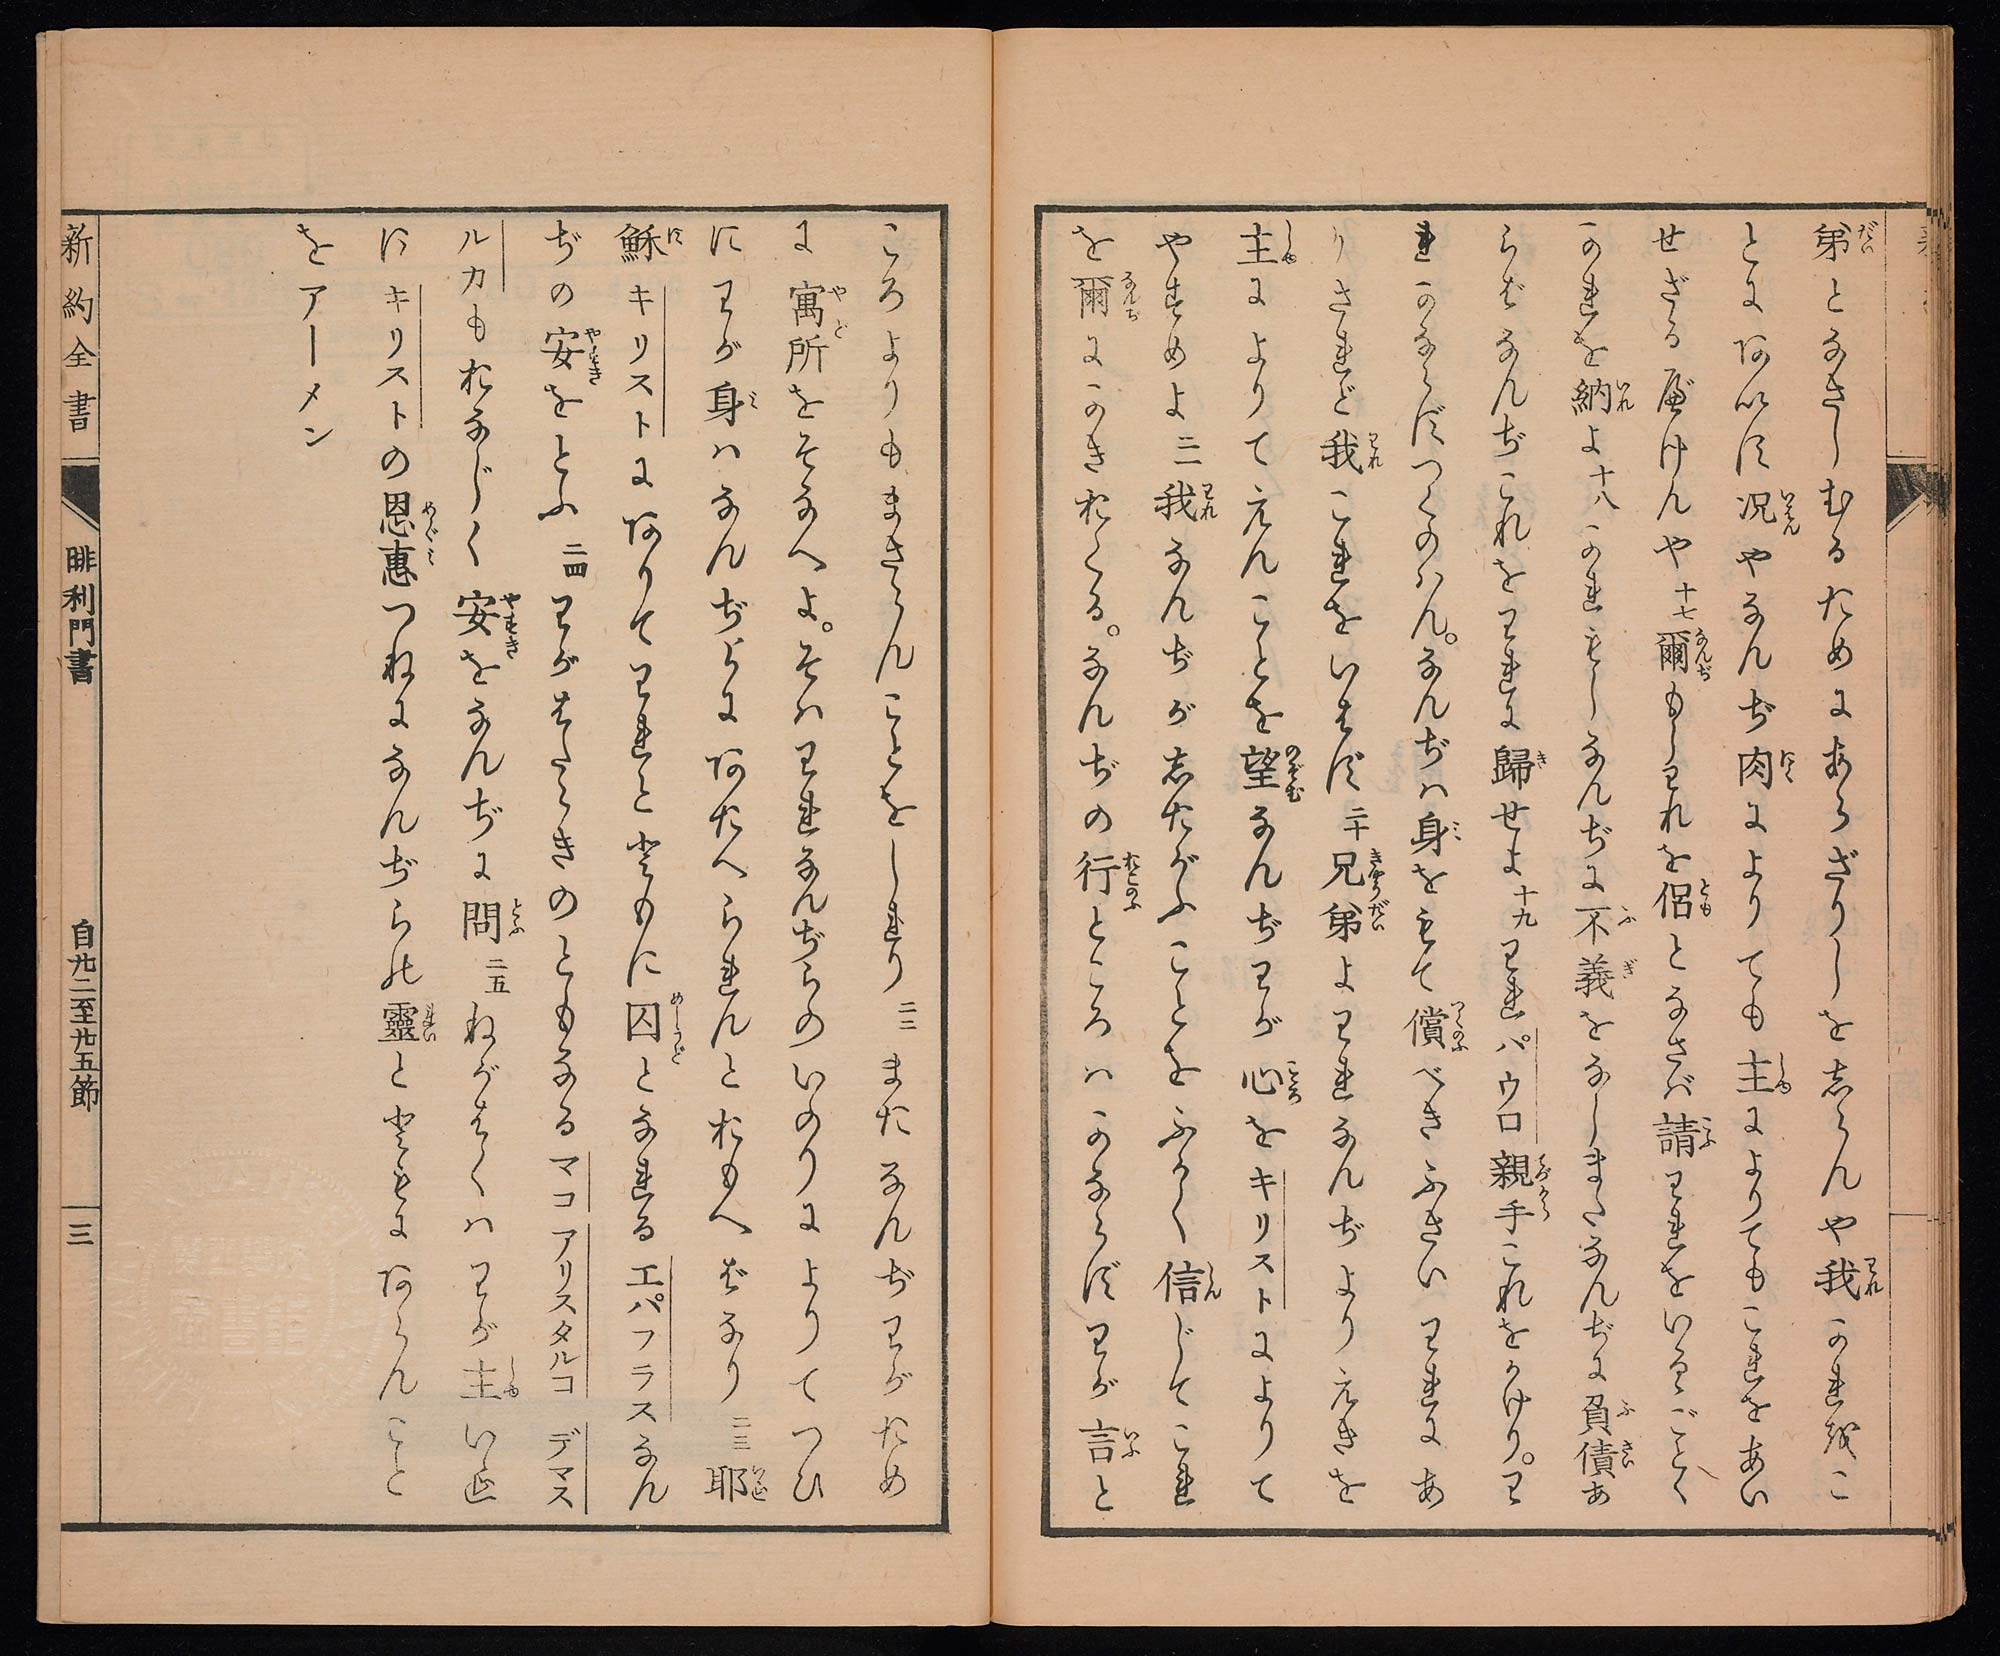 弟となさしむるためにあらざりしを志らんや我かれをこ
とにあいす况やなんぢ肉によりても主によりてもこれをあい
せざるべけんや十七爾もしわれを侶となさば請われをいるゝごとく
かれを納よ十八かれもしなんぢに不義をなしまたなんぢに負債あ
らばなんぢこれをわれに歸せよ十九われパウロ親手これをかけり。わ
れかならずつくのはん。なんぢは身をもて償べきふさいわれにあ
りされど我これをいはず二十兄弟よわれなんぢよりえきを
主によりてえんことを望なんぢわが心をキリストによりて
やすめよ二一我なんぢが志たがふことをふかく信じてこれ
を爾にかきおくる。なんぢの行ところはかならずわが言と
ころよりもまさらんことをしれり二二まだなんぢわがため
に寓所をそなへよ。そはわれなんぢらのいのりによりてつひ
にわが身はなんぢらにあたへられんとおもへばなり二三耶
穌キリストにありてわれとともに囚となれるエパフラスなん
ぢの安をとふ二四わがはたらきのともなるマコアリスタルコデマス
ルカもおなじく安をなんぢに問二五ねがはくはわが主いエ
にキリストの恩惠つねになんぢらの靈とともにあらんこと
をアーメン
新約全書 腓利門書 自廿二至廿五節 三